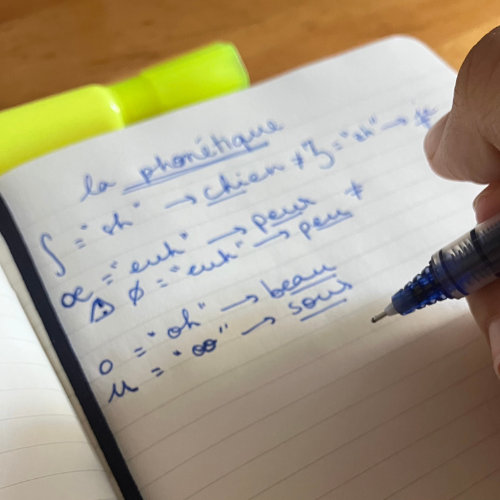 la phonétique
ʃ = "sh" → chien ≠ ʒ = "sh" → je
œ = "euh" → peur ≠
⚠ ø = "euh" → peu
o = "oh" → beau
u = "oo" → sous